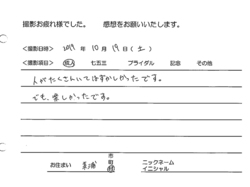 撮影お疲れ様でした。 感想をお願いいたします。
<撮影日時> 2019 年 10 月 19 日 (土)
<撮影項目> 成人 七五三 ブライダル 記念 その他
人がたくさんいてはずかしかったです。
でも、楽しかったです。
お住まい 美浦 市 町 村 ニックネーム イニシャル